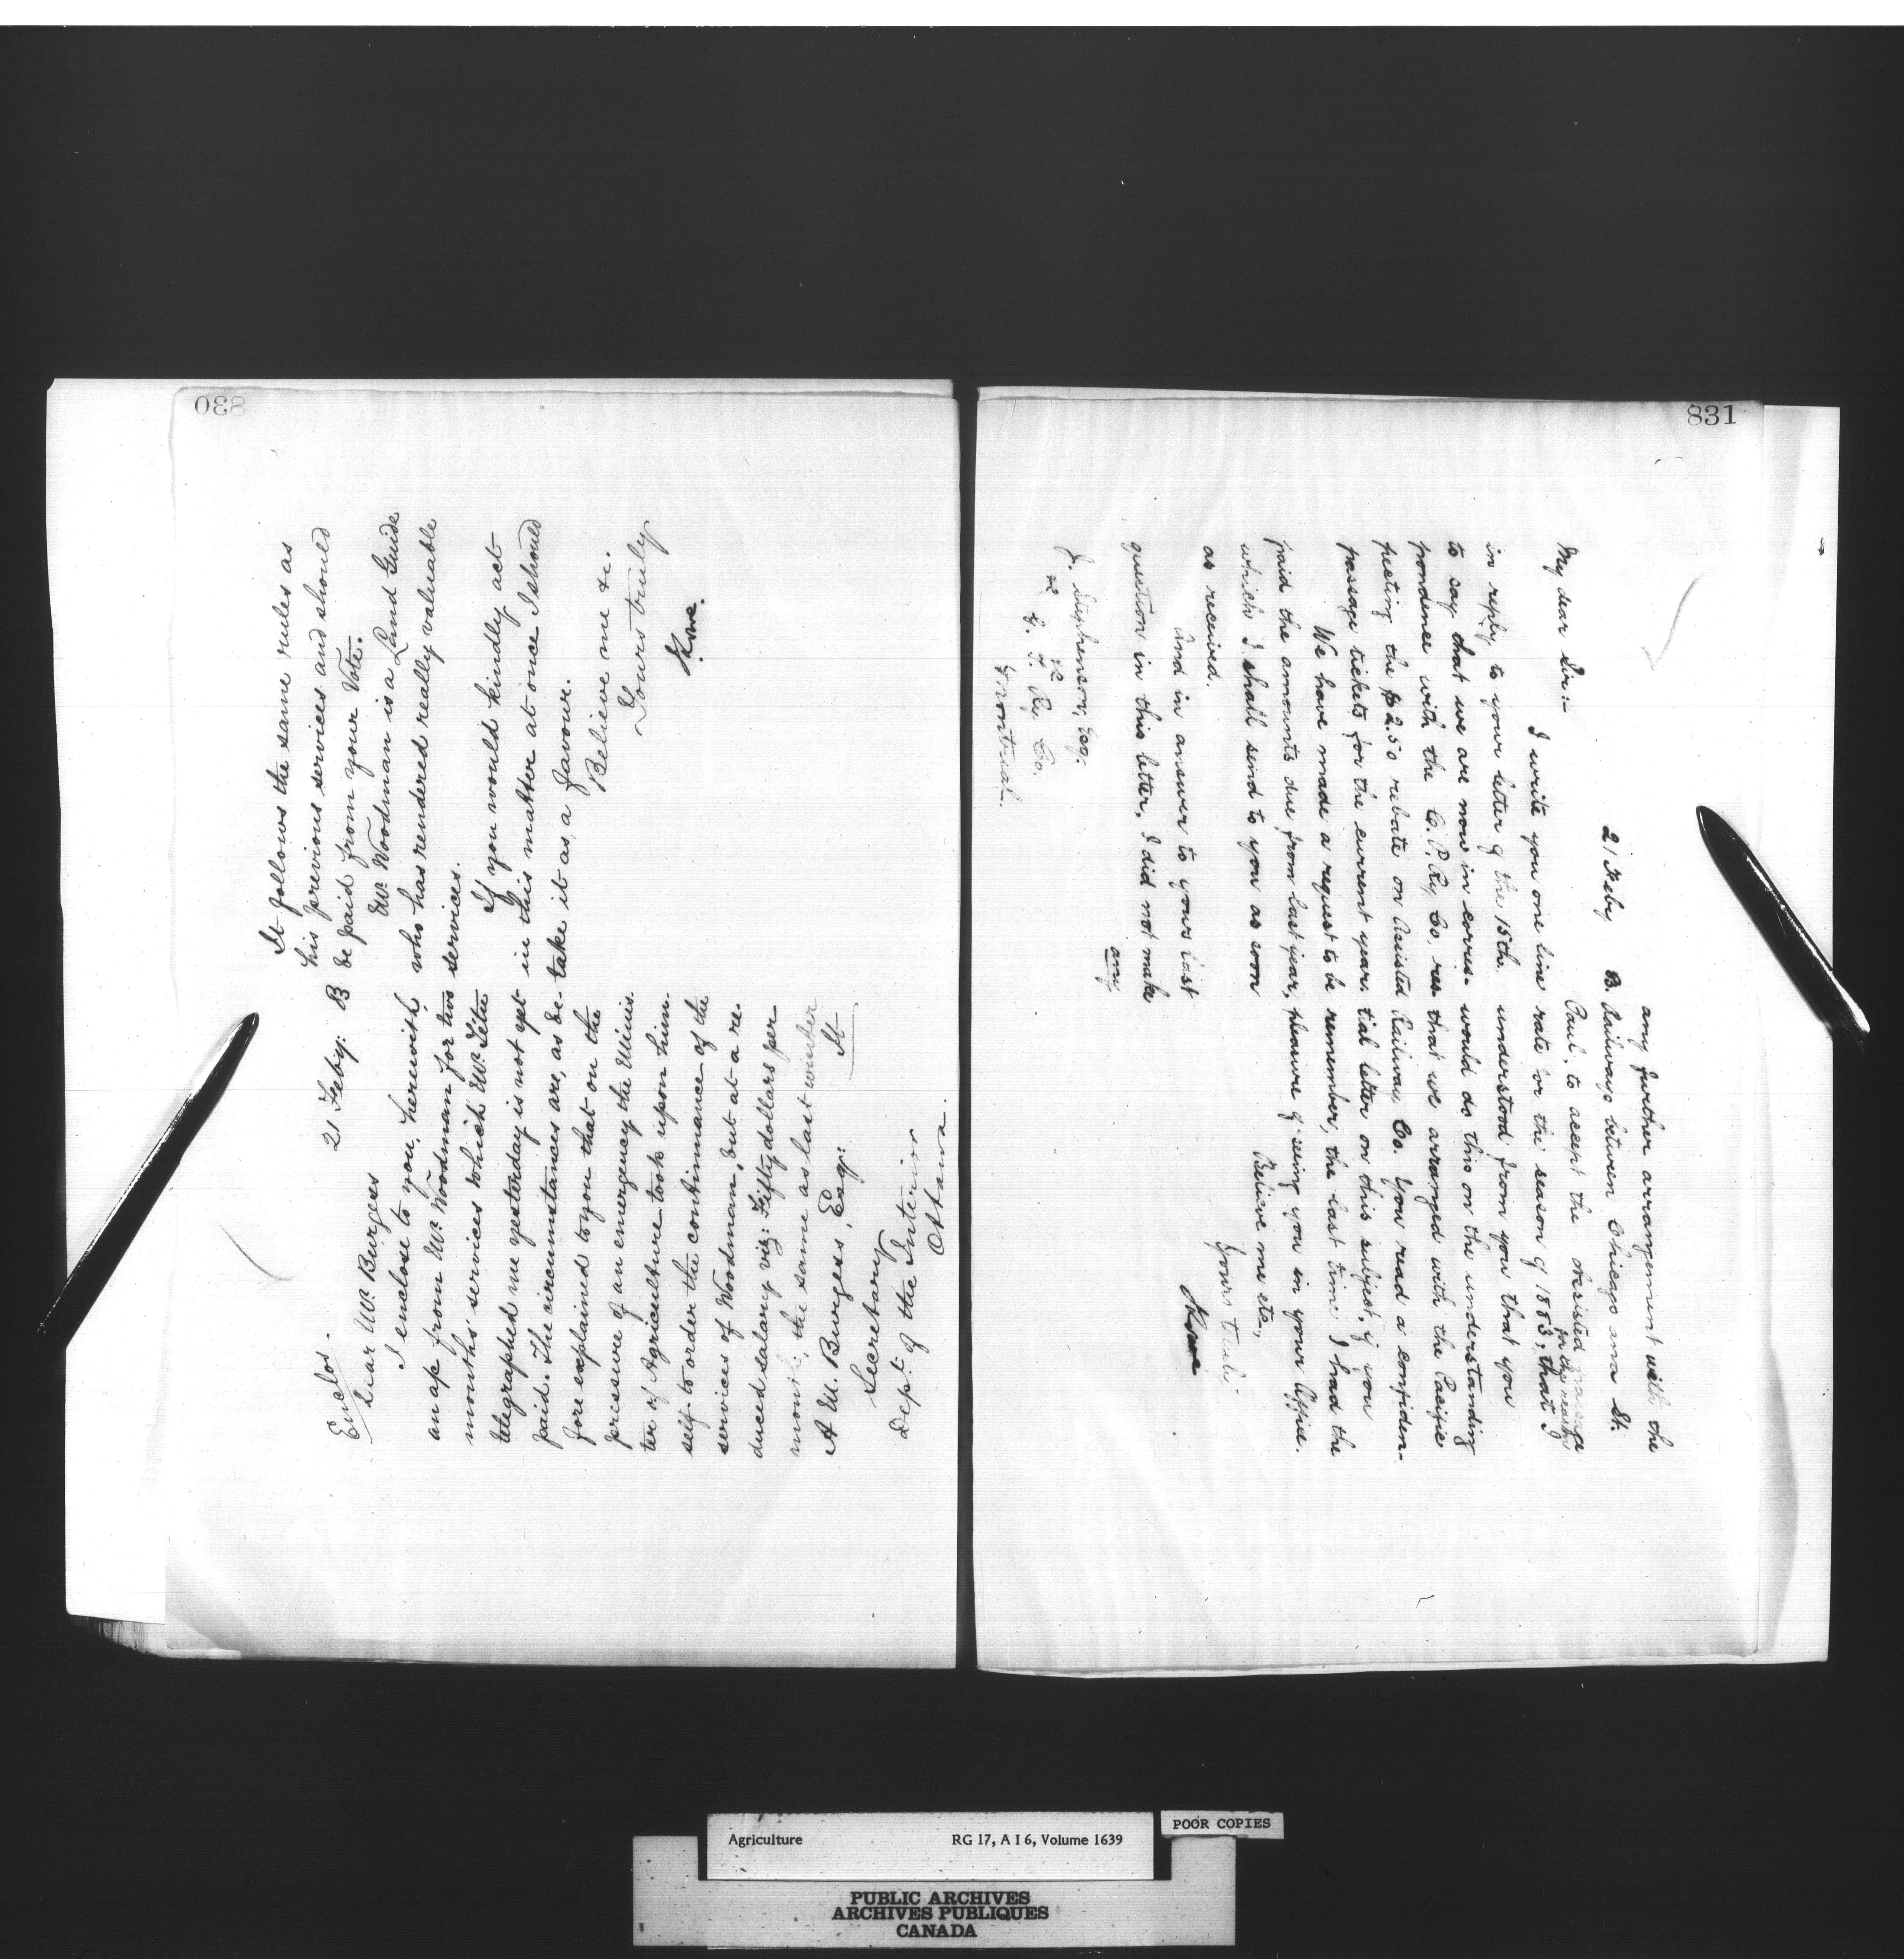 830
21 Feby: B
Enclos.
Dear Mr. Burgess
I enclose to you, herewith,
an a/c from Mr. Woodman for two
months' services which Mr. Tétu
telegraphed me yesterday is not yet
paid. The circumstances are, as be-
fore explained to you that on the
pressure of an emergency the Minis-
ter of Agriculture took upon him-
self to order the continuance of the
services of Woodman, but at a re-
duced salary viz: Fifty dollars per
month; the same as last winter
It
A M. Burgess, Esq:
Secretary
Dept. of the Interior
Ottawa.
It follows the same rules as
his previous services and should
be paid from your Vote.
Mr. Woodman is a Land Guide
who has rendered really valuable
services.
If you would kindly act
in this matter at once I should
take it as a favour.
Believe me &c.
Yours truly
831
21 Feby B.
My dear Sir:-
I write you one line
in reply to your letter of the 15th.
to say that we are now in corres-
pondence with the C.P.Ry Co. res-
pecting the $2.50 rebate on Assisted
passage tickets for the current year.
We have made a request to be
paid the amounts due from last year,
which I shall send to you as soon
as received.
And in answer to yours last
question in this letter, I did not make
any
J. Stephenson, Esq.
G. T. Ry. Co.
Montreal.
any further arrangement with the
Railways between Chicago and St.
Paul, to accept the Assisted passage
for the reason
rate for the season of 1883, that I
understood from you that you
would do this on the understanding
that we arranged with the Pacific
Railway Co. You read a confiden-
tial letter on this subject, if you
remember, the last time I had the
pleasure of seeing you in your Office.
Believe me etc.,
Yours truly
Agriculture RG 17, A I 6, Volume 1639
POOR COPIES
PUBLIC ARCHIVES
ARCHIVES PUBLIQUES
CANADA